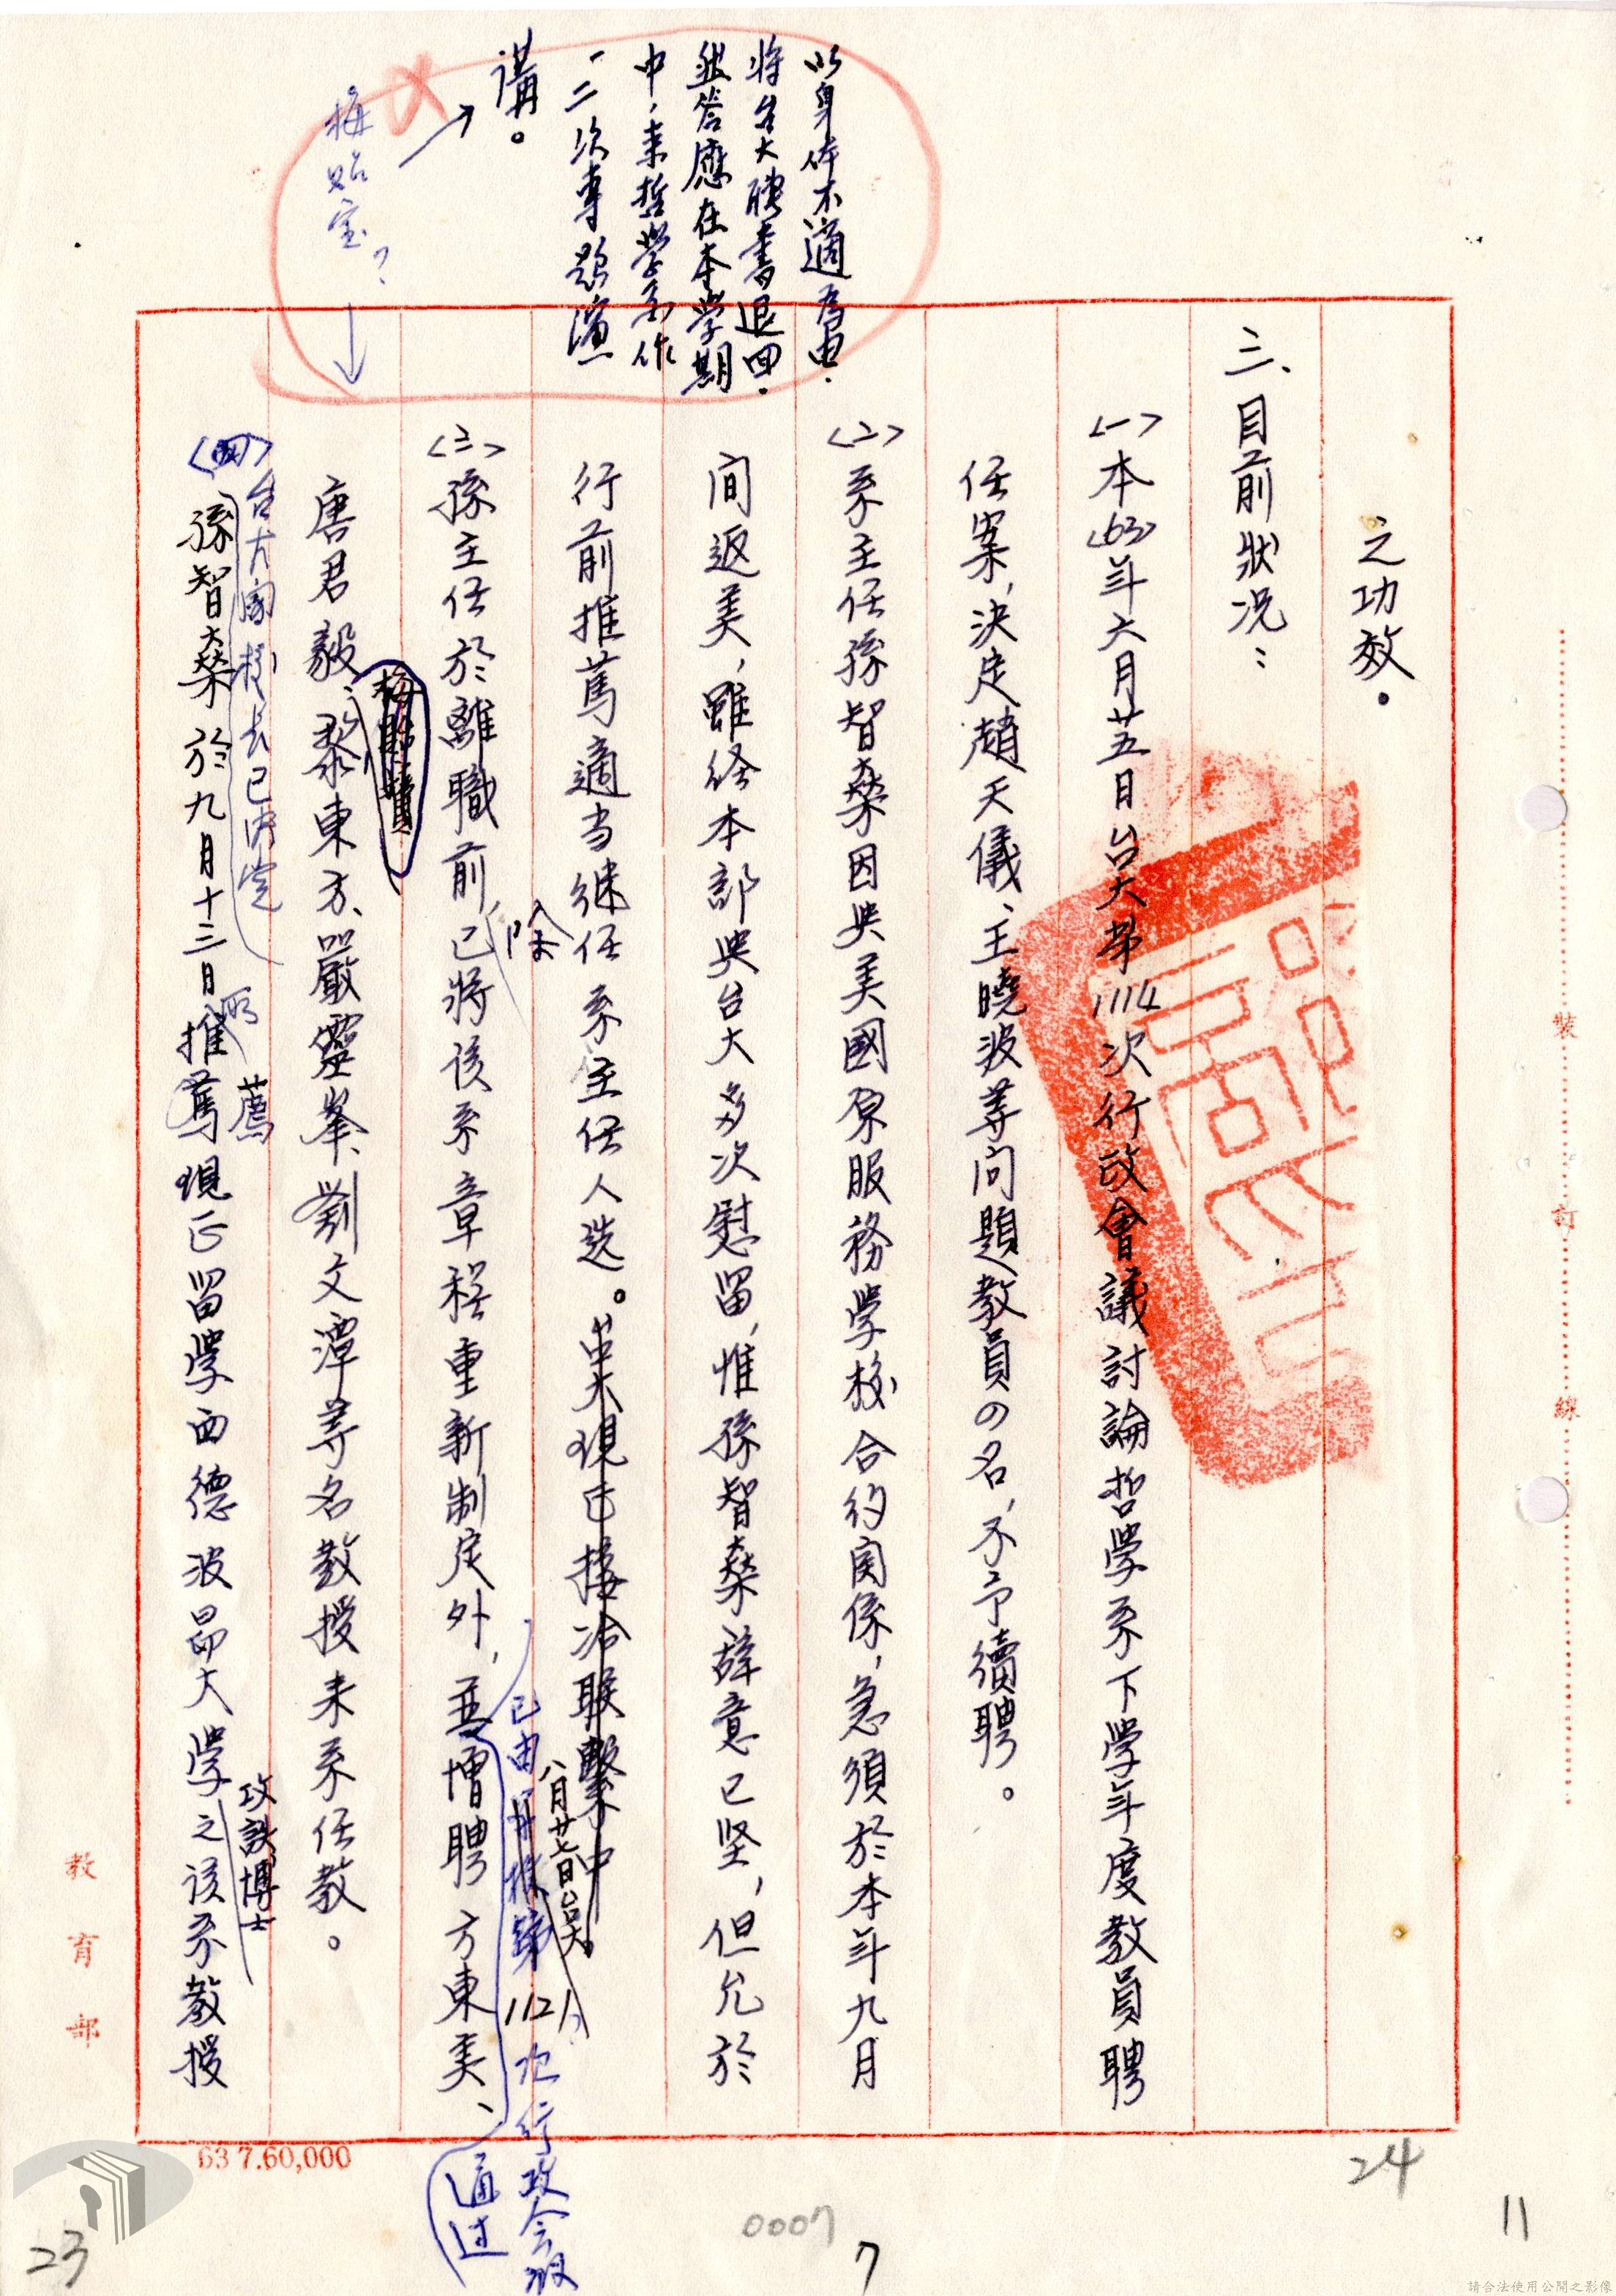 之功效。
三、目前狀况：
〈一〉本〈63〉年六月廿五日台大第1114次行政會議討論哲學系下學年度教員聘
任案，決定趙天儀、王曉波等问題教員の名，不予續聘。
〈二〉系主任孫智燊因與美國原服務學校合約関係，急須於本年九月
间返美，雖经本部與台大多次慰留，惟孫智燊辞意已坚，但允於
行前推荐適当继任系主任人选。台大現已接洽联繫中
〈三〉孫主任於離職前，除已將该系章程重新制定外，並增聘方東美、
八月廿七日台大
第1121次行政会议
通过
唐君毅、黎東方、嚴靈峯、劉文潭等名教授来系任教。
梅貽寶
〈四〉孫智燊於九月十三日推薦現正留學西德波昂大學之该系教授
台大閻校长已決定
攻讀博士
以身体不適為由，
將台大聘書退回，
並答應在本學期
中，来哲學系作
一二次專題演
講。
梅贻宝？
裝訂線
教育部
63 7.60,000
24
23
0007
7
11
請合法使用公開之影像